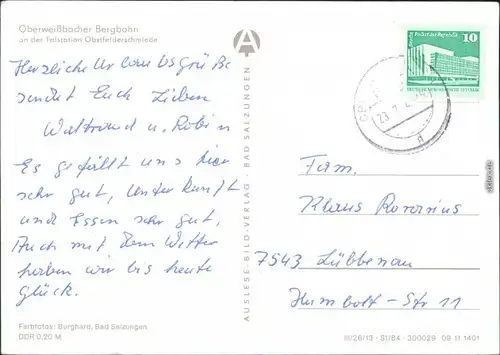 Oberweißbacher Bergbahn
an der Talstation Obstfelderschmiede
Herzliche Urlaubsgrüße
sendet Euch Lieben
Waltraud u. Robin
Es gefällt uns hier
sehr gut, Unterkunft
und Essen sehr gut,
Auch mit dem Wetter
haben wir bis heute
Glück.
Farbfotos: Burghard, Bad Salzungen
DDR 0,20 M
AUSLESE-BILD-VERLAG · BAD SALZUNGEN
10
Fam.
Klaus
7543 Lübbenau
Humbolt-Str 11
III/26/13 · S1/84 · 300029 09 11 1401